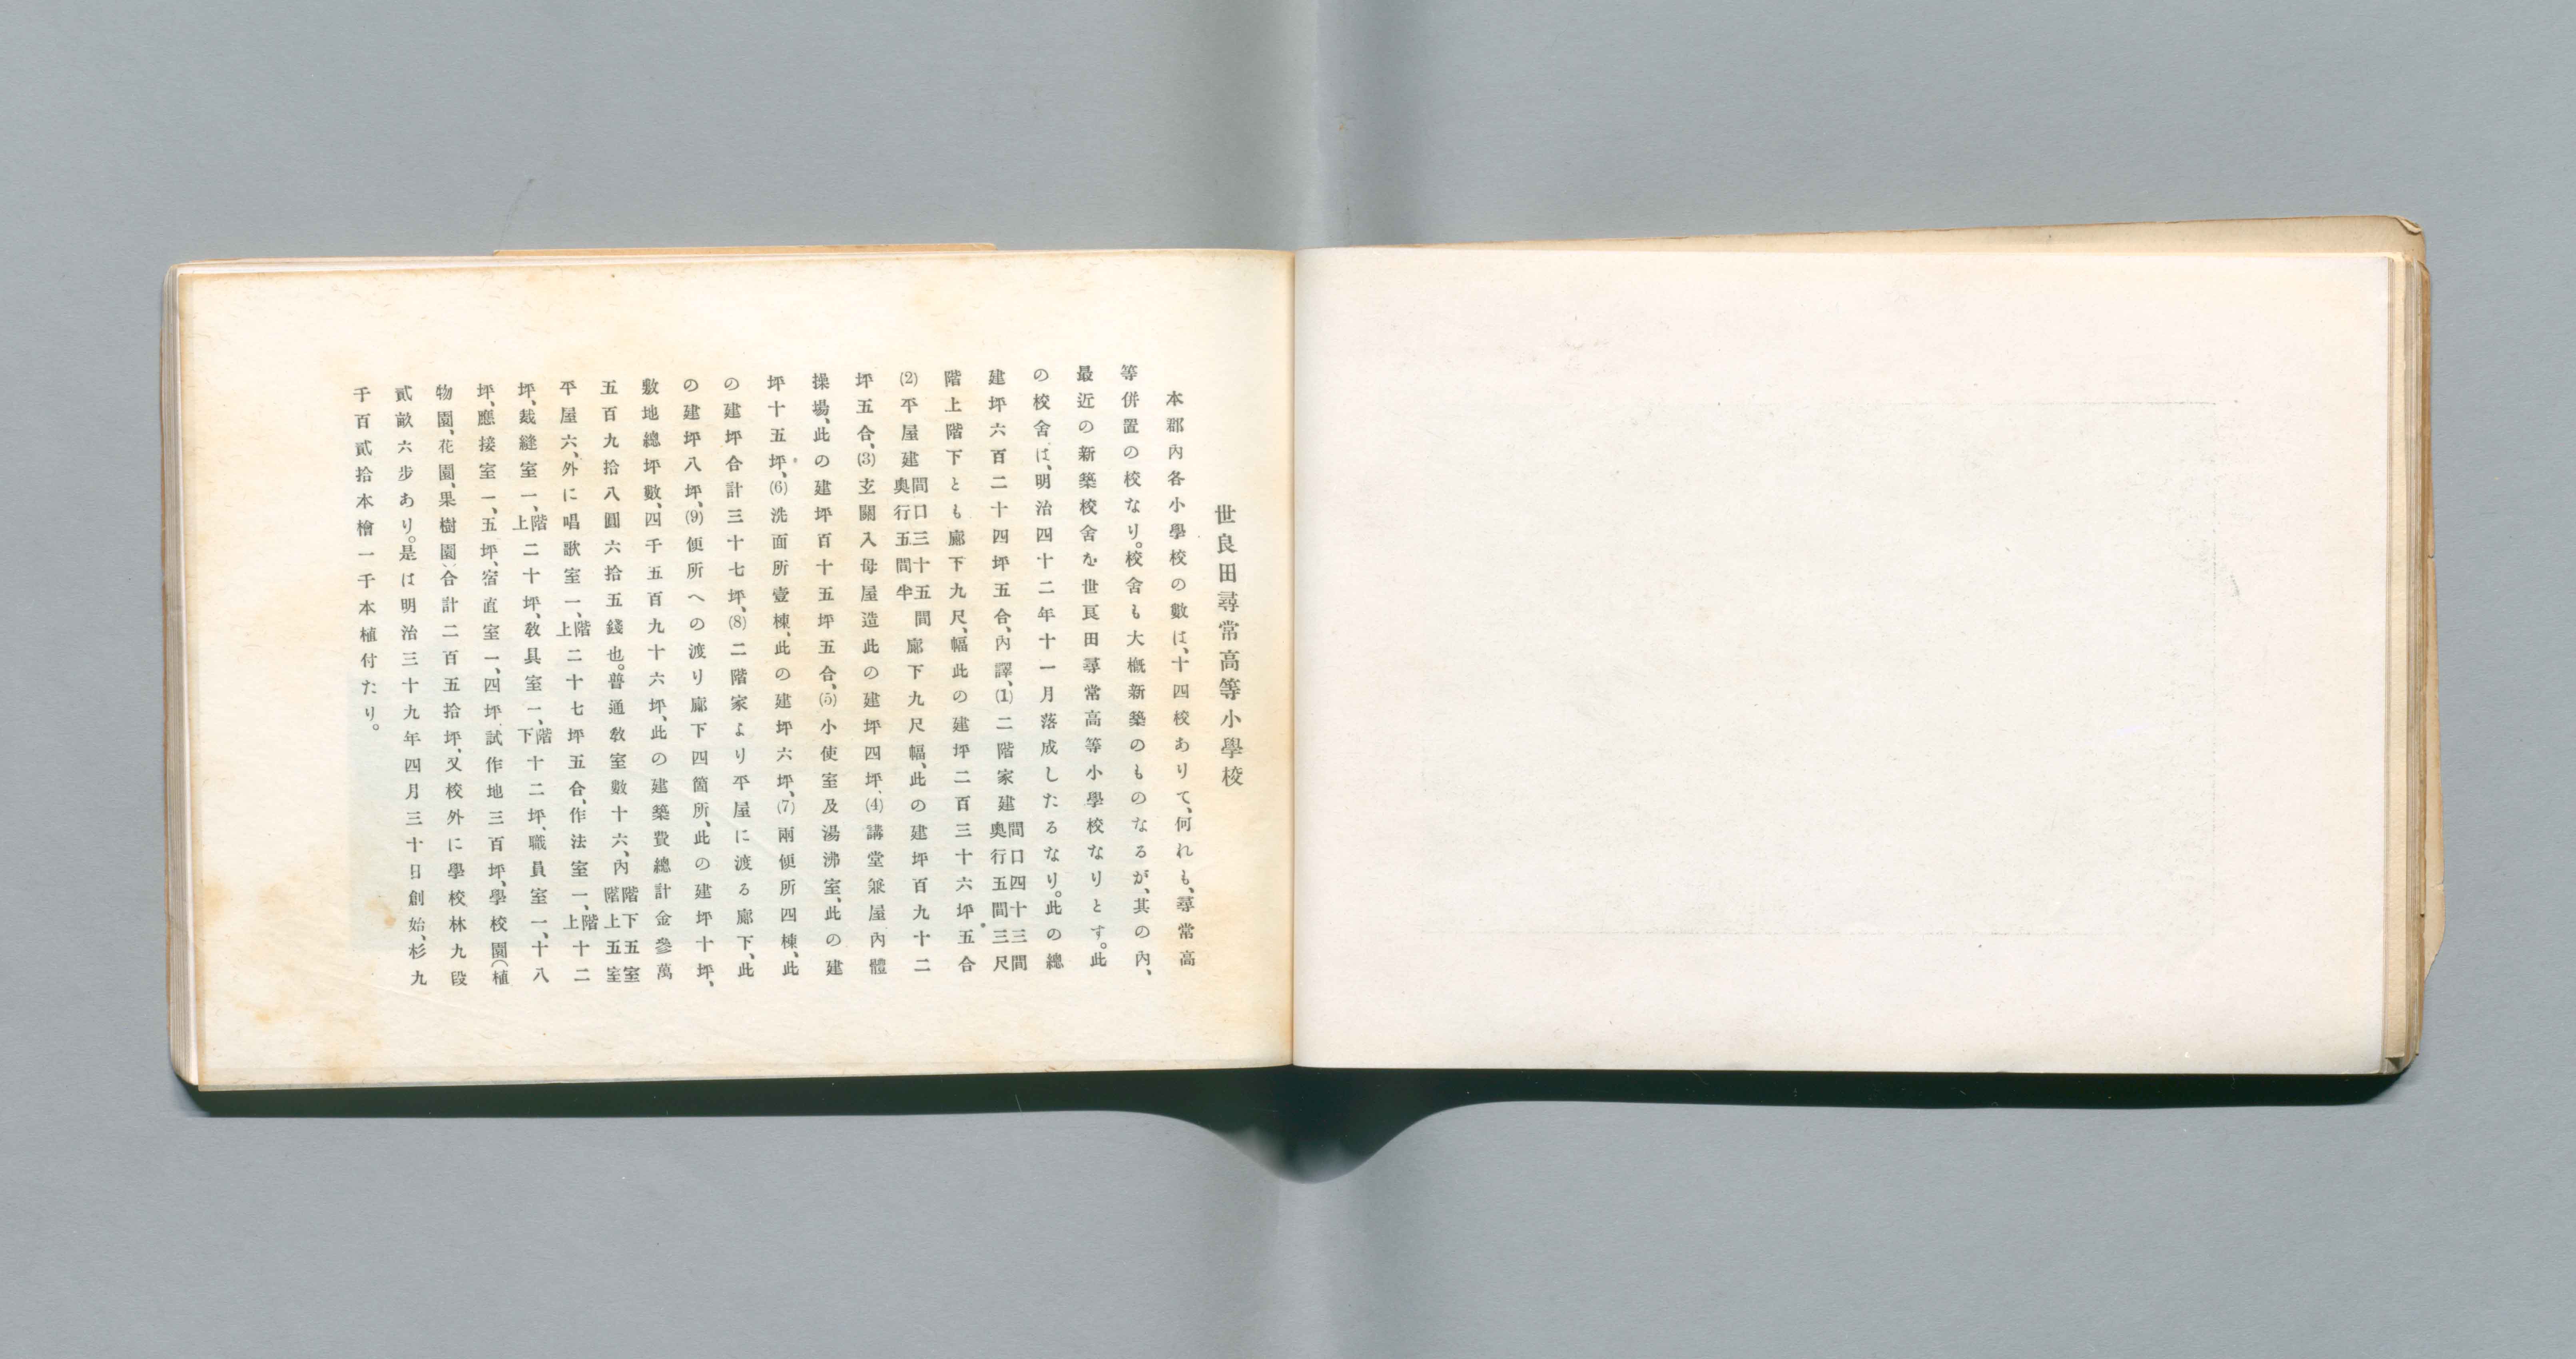 世良田尋常高等小學校
本郡內各小學校の數は、十四校ありて、何れも、尋常高
等併置の校なり。校舍も大槪新築のものなるが、其の內、
最近の新築校舍を世良田尋常高等小學校なりとす。此
の校舍は、明治四十二年十一月落成したるなり。此の總
建坪六百二十四坪五合、內譯、(1)二階家建間口四十三間奧行五間三尺
階上階下とも廊下九尺、幅此の建坪二百三十六坪五合
(2)平屋建間口三十五間奧行五間半廊下九尺幅、此の建坪百九十二
坪五合、(3)玄關入母屋造此の建坪四坪、(4)講堂兼屋內體
操場、此の建坪百十五坪五合、(5)小使室及湯沸室、此の建
坪十五坪、(6)洗面所壹棟、此の建坪六坪、(7)兩便所四棟、此
の建坪合計三十七坪、(8)二階家より平屋に渡る廊下、此
の建坪八坪、(9)便所への渡り廊下四箇所、此の建坪十坪、
敷地總坪數、四千五百九十六坪、此の建築費總計金參萬
五百九拾八圓六拾五錢也。普通敎室數十六、內階下五室階上五室
平屋六、外に唱歌室一、階上二十七坪五合、作法室一、階上十二
坪、裁縫室一、階上二十坪、敎具室一、階下十二坪、職員室一、十八
坪、應接室一、五坪、宿直室一、四坪、試作地三百坪、學校園(植
物園、花園、果樹園)合計二百五拾坪、又校外に學校林九段
貳畝六步あり。是は明治三十九年四月三十日創始、杉九
千百貳拾本檜一千本植付たり。